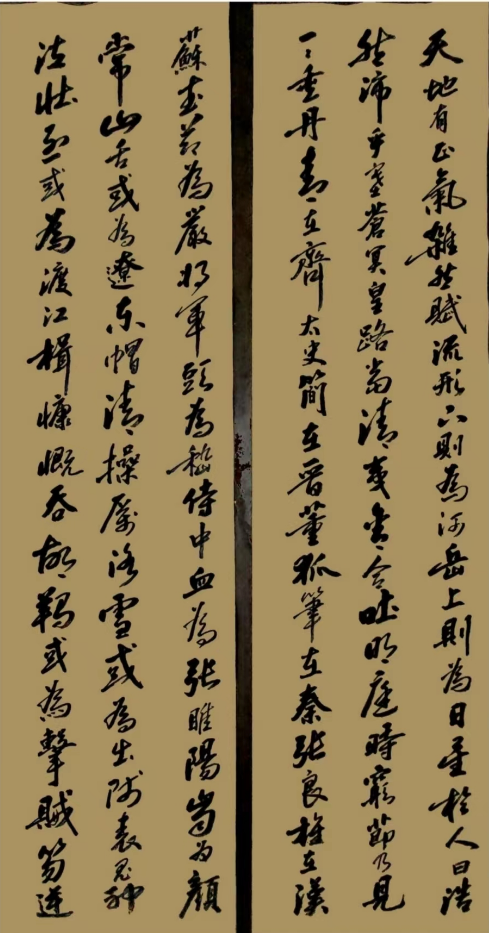 天地有正氣雜然賦流形下則為河岳上則為日星於人曰浩
然沛乎塞蒼冥皇路當清夷含和吐明庭時窮節乃見
一一垂丹青在齊太史簡在晉董狐筆在秦張良椎在漢
蘇武節為嚴將軍頭為嵇侍中血為張睢陽齒為顏
常山舌或為遼東帽清操厲冰雪或為出師表鬼神
泣壯烈或為渡江楫慷慨吞胡羯或為擊賊笏逆